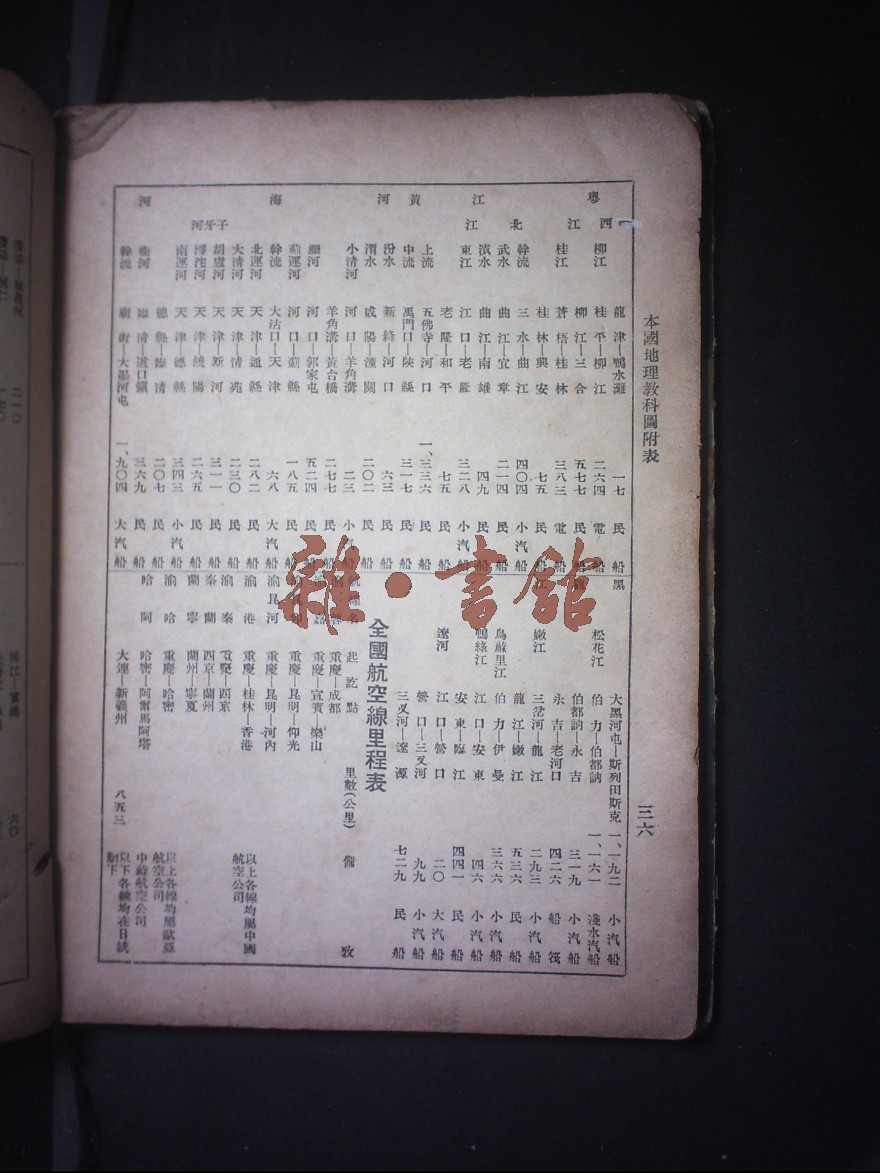 本國地理教科圖附表
三六
粵江
黃河
海河
西江
北江
東江
子牙河
龍津—鴨水灘 一七 民船
柳江 桂平—柳江 二六四 電船
柳江—三合 五七七 民船
桂江 蒼梧—桂林 三八三 電船
桂林—興安 七五 民船
幹流 三水—曲江 四〇四 小汽船
武水 曲江—宜章 二一四 民船
滇水 曲江—南雄 四九 民船
東江 江口—老隆 三二八 小汽船
老隆—和平 七五 民船
上流 五佛寺—河口 一、三三六 民船
中流 禹門口—陝縣 三一七 民船
汾水 新絳—河口 六三 民船
渭水 咸陽—潼關 二〇二 民船
小清河 河口—羊角溝 二三 小汽船
羊角溝—黃台橋 二七七 民船
灤河 河口—郭家屯 五二四 民船
薊運河 河口—薊縣 一八五 民船
幹流 大沽口—天津 六八 大汽船
北運河 天津—通縣 二八二 民船
大清河 天津—清苑 二三〇 民船
胡盧河 天津—新河 三一一 民船
滹沱河 天津—饒陽 二六五 民船
南運河 天津—德縣 三四三 小汽船
德縣—臨清 二〇七 民船
衛河 臨清—道口鎮 三六九 民船
幹流 廟街—大黑河屯 一、九〇四 大汽船
黑龍江
大黑河屯—斯列田斯克 一、一九二 小汽船
松花江 伯力—伯都訥 一、一六一 淺水汽船
伯都訥—永吉 三一九 小汽船
永吉—老河口 四二六 船筏
嫩江 三岔河—龍江 二九三 小汽船
龍江—嫩江 五三六 民船
烏蘇里江 伯力—伊曼 三六六 小汽船
鴨綠江 江口—安東 四六 小汽船
安東—臨江 四四一 民船
遼河 江口—營口 二〇 大汽船
營口—三叉河 九九 小汽船
三叉河—遼源 七二九 民船
全國航空線里程表
起訖點 里數(公里) 備攷
重慶—成都
重慶—宜賓—樂山
重慶—昆明—仰光
渝昆河 重慶—昆明—河內
渝港 重慶—桂林—香港 以上各線均屬中國航空公司
渝秦 重慶—西京
秦蘭 西京—蘭州
蘭寧 蘭州—寧夏
渝哈 重慶—哈密 以上各線均屬歐亞航空公司
哈阿 哈密—阿爾馬阿塔 中蘇航空公司
大連—新義州 八五三 以下各線均在日統制下
雜·書館